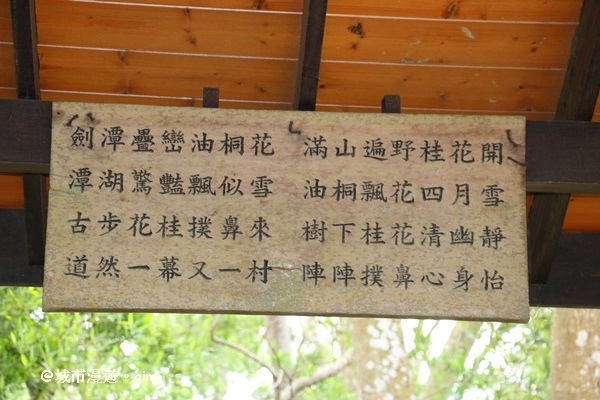 劍潭疊巒油桐花　滿山遍野桂花開
潭湖驚豔飄似雪　油桐飄花四月雪
古步花桂撲鼻來　樹下桂花清幽靜
道然一幕又一村　陣陣撲鼻心身怡
@城市漫遊